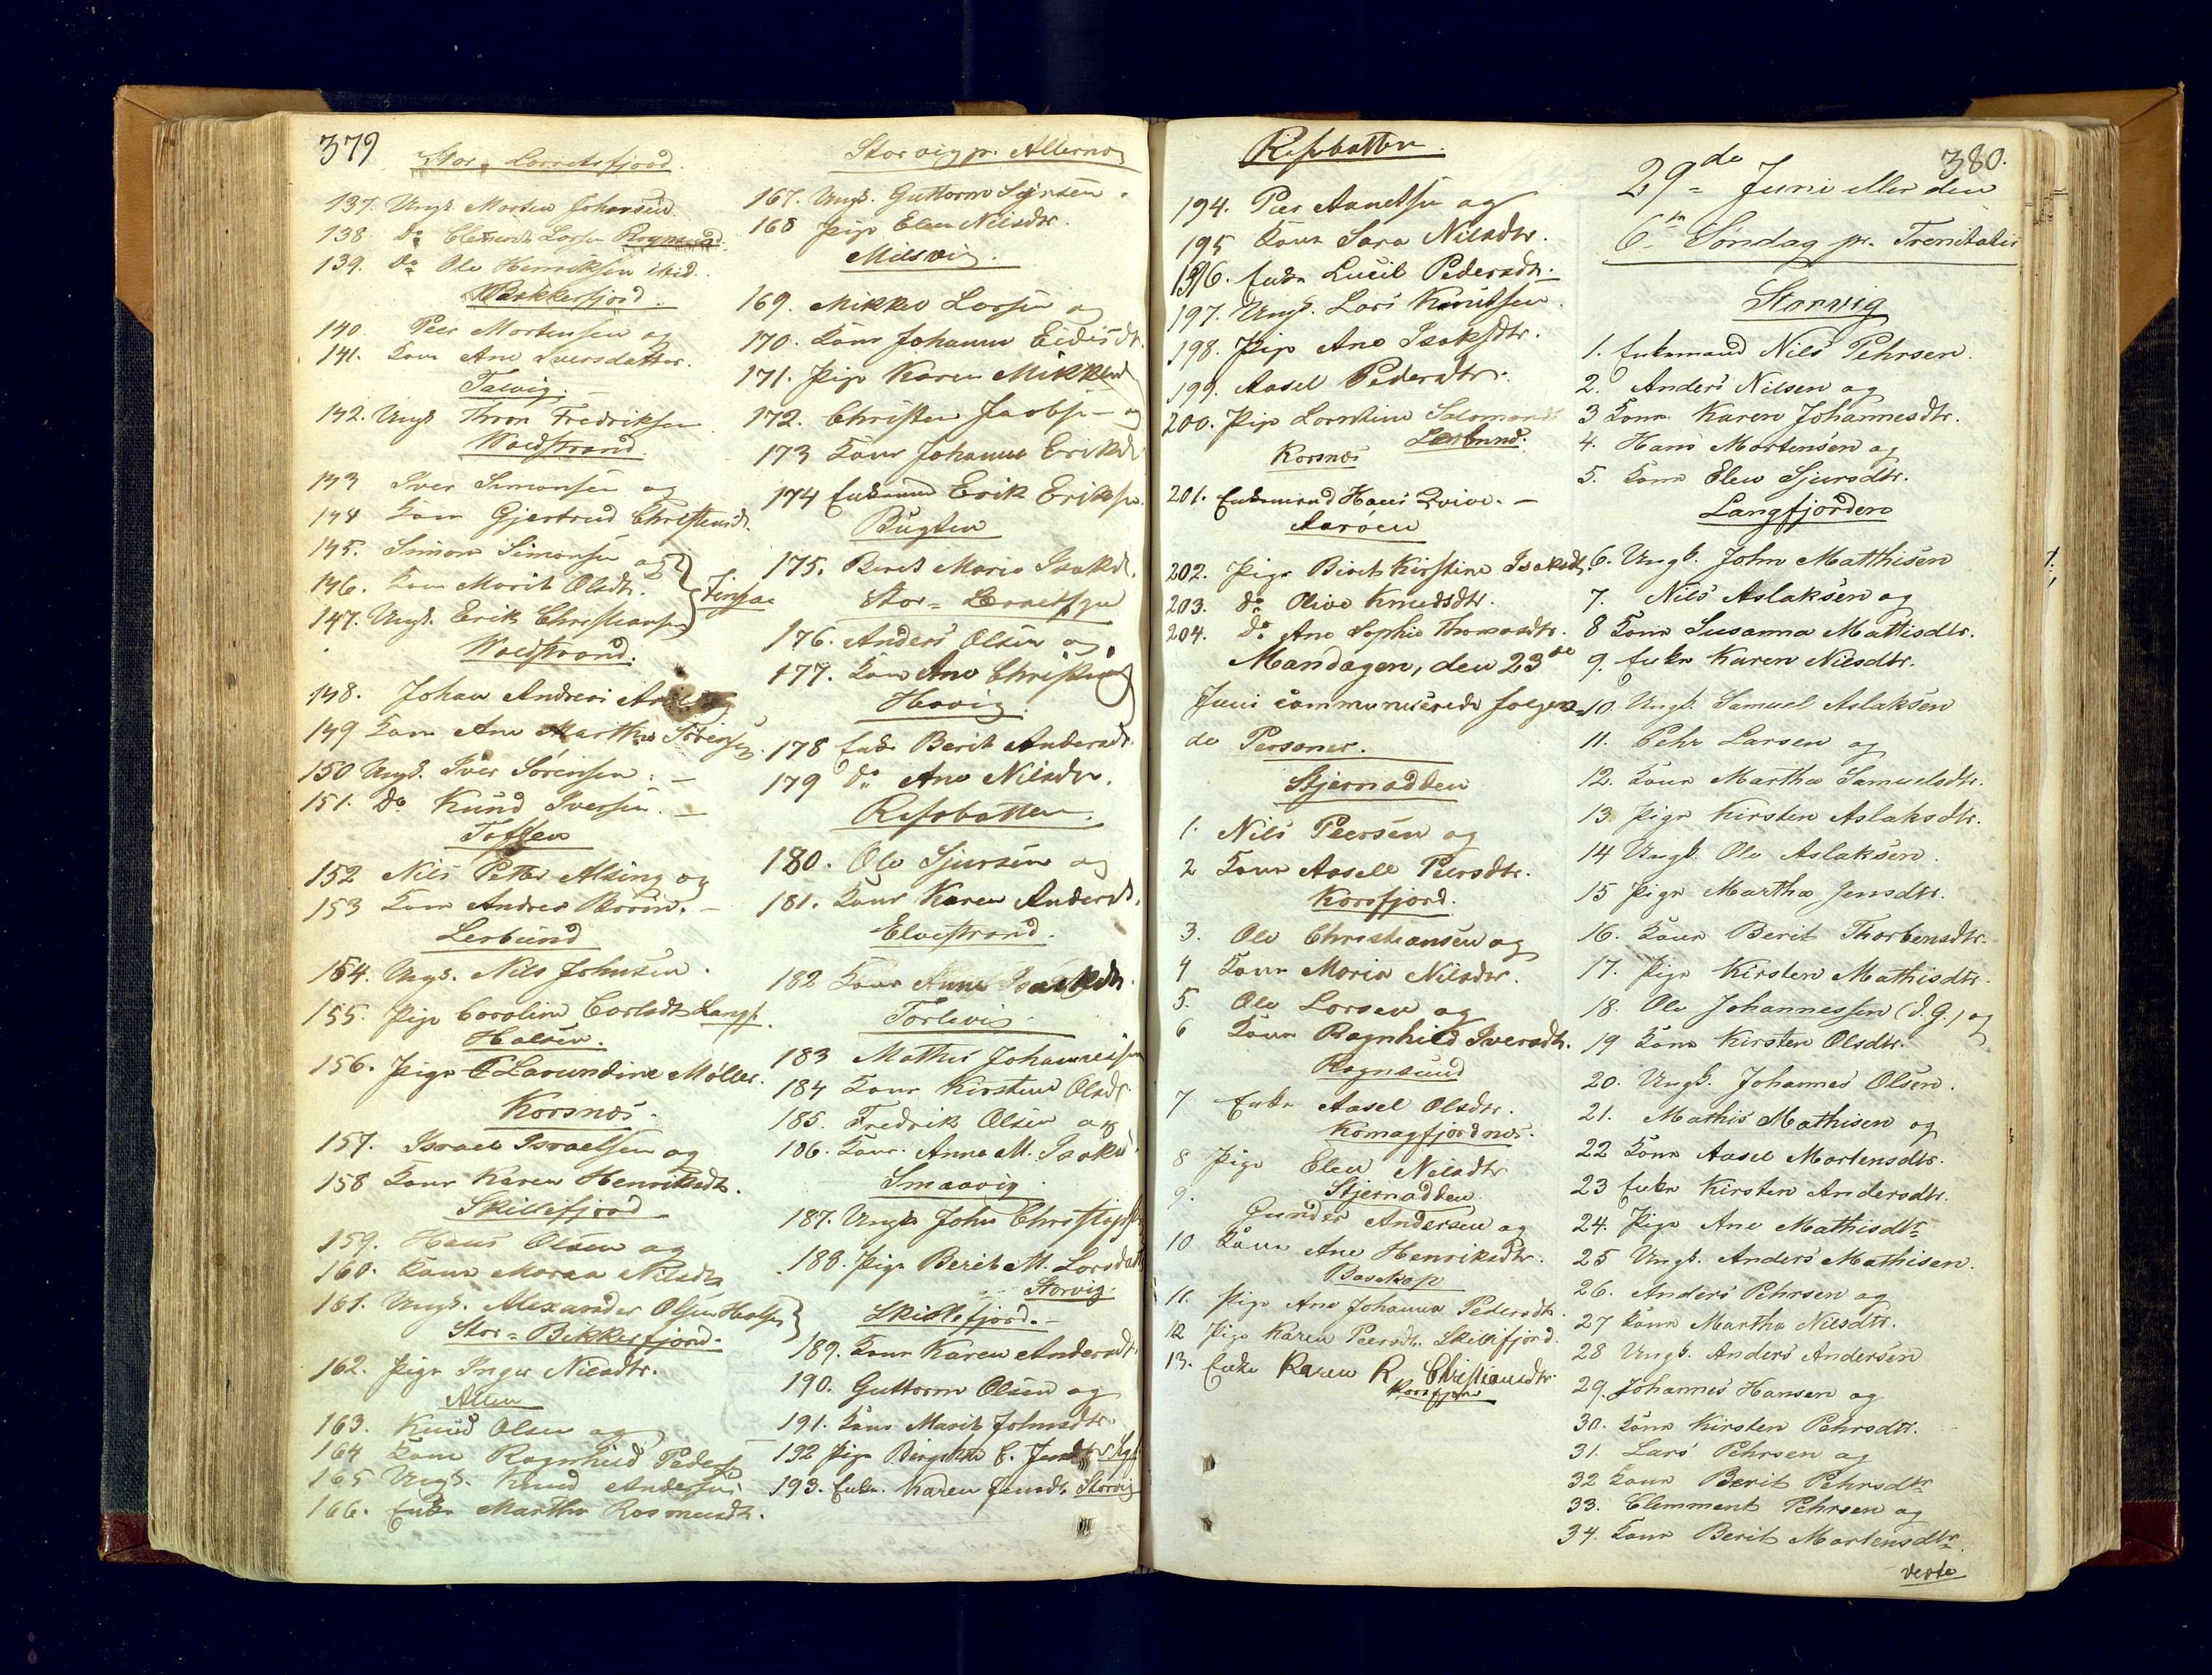 379
Stor Lerretsfjord.
137. Ungk. Morten Johansen.
138. Do Clement Larsen Rognsund.
139. Do Ole Henriksen ibid.
Bekkerfjord.
140. Peer Mortensen og
141. Kone Ane Iversdatter.
Talvig.
142. Ungk. Thron Fredriksen
Woldstrand.
143 Iver Simonsen og
144 Kone Gjertrud Christensdt.
145. Simon Simonsen og
146. Kone Marit Olsdtr.
147. Ungk. Erik Christiansen
Woldstrand.
148. Johan Andreas
149 Kone Ane Martha
150 Ungk. Iver Sörensen. —
151. Do Knud Iversen. —
Toften
152 Nils Petter Alsing og
153 Kone Andrea —
Lerbund
154. Ungk. Nils Johnsen.
155. Pige Caroline Carlsdt Langf.
Halsen.
156. Pige Laurindine Møller.
Korsnæs.
157. Israel Israelsen og
158 Kone Karen Henriksdt.
Skillefjord
159. Hans Olsen og
160. Kone Maren Nilsdtr
161. Ungk. Alexander Olsen
Stor-Bekkerfjord.
162. Pige Inger Nilsdtr.
Alten
163. Knud Olsen og
164 Kone Ragnhild
165 Ungk. Knud Andersen
166. Enke Martha Rasmusdt.
Storvig pr. Alternæs
167. Ungk. Guttorm
168 Pige Elen Nilsdtr.
Milsvig.
169. Mikkel Larsen og
170. Kone Johanna
171. Pige Karen
172. Christen Jacobsen og
173 Kone Johanna Eriksdt
174 Enkemand Erik Eriksen.
Bugten
175. Berit Maria Isaksdt.
Stor-Lerretsfj
176. Anders Olsen og
177. Kone Ane
178 Enke Berit Andersdt.
179 Do Ane Nilsdtr.
Refsbotten.
180. Ole Sjursen og
181. Kone Karen Andersdt.
Elvestrand.
182 Kone Anne Isaksdtr.
183 Mathis Johannesen
184 Kone Kirsten Olsdt.
185. Fredrik Olsen og
186. Kone Anna M. Isaks
Smaavig
187. Ungk John Christophs
188. Pige Berit M. Larsdatt
Storvig.
Skillefjord. —
189. Kone Karen Andersdt.
190. Guttorm Olsen og
191. Kone Marit Johnsdtr.
192 Pige
193. Enke Karen Jensdt. Storvig
Refsbotten.
194. Peer og
195 Kone Sara Nilsdtr.
196. Enke Lucil Pedersdtr.
197. Ungk. Lars Knutsen.
198. Pige Ane Isaksdtr.
199. Aasel Pedersdtr.
200. Pige Lorntine Salomonsdt
Lerbund.
Korsnæs
201. Enkemand Hans —
Aaroen
202. Pige Birit Kirstine Isaksdt.
203. Do Olive Knudsdtr.
204. Do Ane Sophie Thomasdtr.
Mandagen, den 23de
Juni communicerede følgen=
de Personer.
Stjernodden
1. Nils Peersen og
2 Kone Aasell Peersdtr.
Korsfjord.
3. Ole Christiansen og
4 Kone Maria Nilsdtr.
5. Ole Larsen og
6 Kone Ragnhild Iversdtr.
Rognsund
7 Enke Aasel Olsdtr.
Komagfjordnæs.
8 Pige Elen Nilsdtr
Stjernodden.
9. Gunder Andersen og
10 Kone Ane Henriksdtr.
Bosekop
11. Pige Ane Johanna Pedersdtr.
12 Pige Karen Peersdt. Skillifjord.
13. Enke Karen R. Christiansdtr.
Korsfjord
380.
29de Juni eller den
6te Søndag pr. Trenitatis
Storvig
1. Enkemand Nils Pehrsen.
2 Anders Nilsen og
3 Kone Karen Johannesdtr.
4. Hans Mortensen og
5. Kone Elen Sjursdtr.
Langfjorden
6. Ungk. John Matthisen
7. Nils Aslaksen og
8 Kone Susanna Mattisdtr.
9. Enke Karen Nilsdtr.
10. Ungk. Samuel Aslaksen
11. Pehr Larsen og
12. Kone Martha Samuelsdtr.
13. Pige Kirsten Aslaksdtr.
14 Ungk. Ole Aslaksen.
15 Pige Martha Jensdtr.
16. Kone Berit Thorbensdtr.
17. Pige Kirsten Mathisdtr.
18. Ole Johannessen (I.G.) og
19 Kone Kirsten Olsdtr.
20. Ungk. Johannes Olsen.
21. Mathis Mathisen og
22 Kone Aasel Mortensdtr.
23 Enke Kirsten Andersdtr.
24. Pige Ane Mathisdtr
25 Ungk. Anders Mathisen.
26. Anders Pehrsen og
27 Kone Martha Nilsdtr.
28 Ungk. Anders Andersen
29. Johannes Hansen og
30. Kone Kirsten Pehrsdtr.
31. Lars Pehrsen og
32 Kone Berit Pehrsdtr
33. Clemment Pehrsen og
34. Kone Berit Mortensdtr
verte